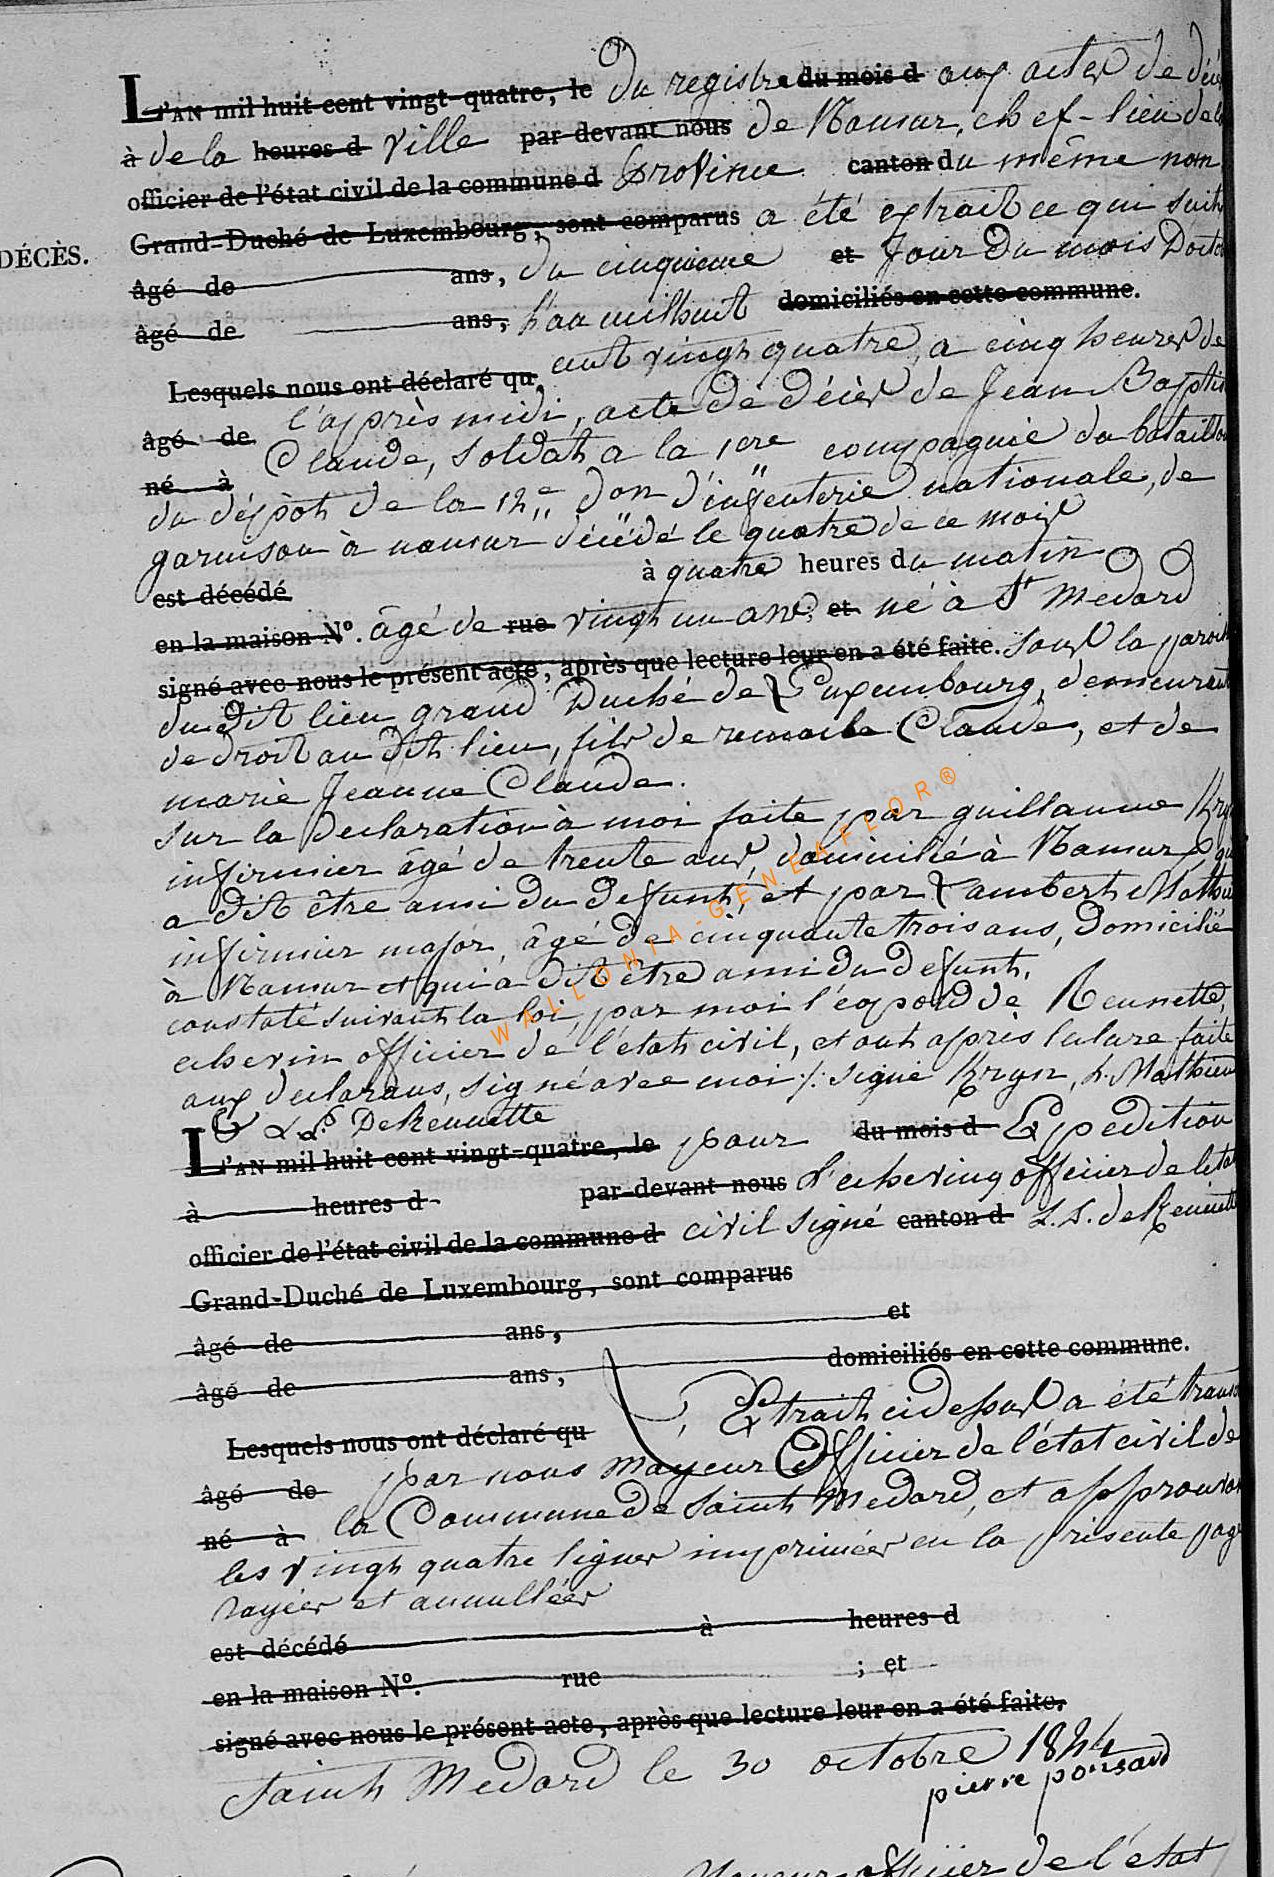 L'AN mil huit cent vingt-quatre, le du registre du mois d aux actes de décès
à de la heures d ville par-devant nous de Namur, chef-lieu de la
officier de l'état civil de la commune d province canton du même nom
Grand-Duché de Luxembourg, sont comparus a été extrait ce qui suit
DÉCÈS.
âgé de ans, du cinquieme et Jour du mois Doctobre
âgé de ans, l'an milhuit domiciliés en cette commune.
Lesquels nous ont déclaré qu cent vingt quatre, a cinq heures de
âgé de l'après midi, acte de décès de Jean Baptiste
né à Claude, soldat a la 1ere compagnie du bataillon
du dépôt de la 12e don d'infenterie nationale, de
garnison à namur décédé le quatre de ce mois
est décédé à quatre heures du matin
en la maison N°. âgé de rue vingt un ans, et né à St Medard
signé avec nous le présent acte, après que lecture leur en a été faite. sous la paroisse
du dit lieu grand Duché de Luxembourg, demeurant
de droit au dit lieu, fils de remacle Claude, et de
marie Jeanne Claude.
sur la declaration à moi faite par guillaume
infirmier âgé de trente ans, domicilié à Namur, qui
a dit être ami du defunt, et par Lambert Mathieu
infirmier major, âgé de cinquante trois ans, Domicilié
à Namur et qui a dit être ami du defunt.
constaté suivant la loi, par moi de Rennette,
echevin officier de l'état civil, et ont après lecture faite
aux declarans, signé avec moi /. signé Kryn, L. Mathieu
& L L. De Rennette
L'AN mil huit cent vingt-quatre, le pour du mois d Expedition
à heures d par-devant nous l'echeving officier de l'état
officier de l'état civil de la commune d civil signé canton d L. L. de Rennette
Grand-Duché de Luxembourg, sont comparus
âgé de ans, et
âgé de ans, domiciliés en cette commune.
Lesquels nous ont déclaré qu L'Extrait cidessus a été transcrit
âgé de par nous mayeur Officier de l'état civil de
né à la Commune de Saint Medard, et approuvons
les vingt quatre lignes imprimées en la présente page
rayées et annullées
est décédé à heures d
en la maison N°. rue ; et
signé avec nous le présent acte, après que lecture leur en a été faite.
Saint Medard le 30 octobre 1824
pierre ponsard
officier de l'état
WALLONIA-GENEAFLOR®